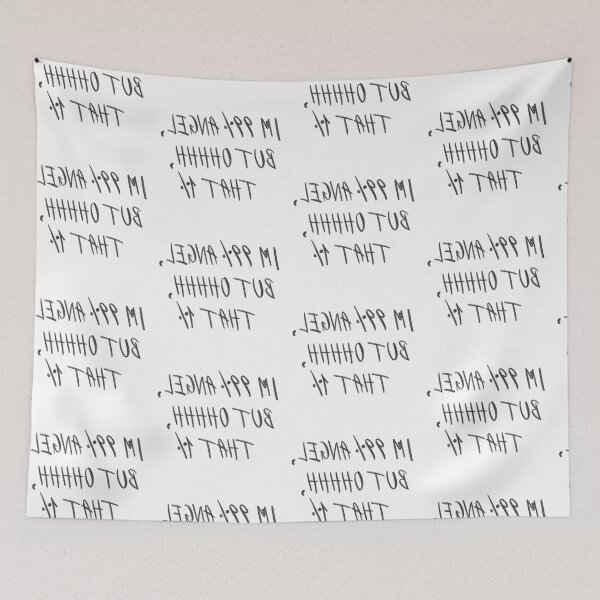 BUT OHHHH,
THAT 1%
IM 99% ANGEL,
BUT OHHHH,
THAT 1%
IM 99% ANGEL,
BUT OHHHH,
THAT 1%
IM 99% ANGEL,
BUT OHHHH,
THAT 1%
IM 99% ANGEL,
BUT OHHHH,
THAT 1%
IM 99% ANGEL,
BUT OHHHH,
THAT 1%
IM 99% ANGEL,
BUT OHHHH,
THAT 1%
IM 99% ANGEL,
BUT OHHHH,
THAT 1%
IM 99% ANGEL,
BUT OHHHH,
THAT 1%
IM 99% ANGEL,
BUT OHHHH,
THAT 1%
IM 99% ANGEL,
BUT OHHHH,
THAT 1%
IM 99% ANGEL,
BUT OHHHH,
THAT 1%
IM 99% ANGEL,
BUT OHHHH,
THAT 1%
IM 99% ANGEL,